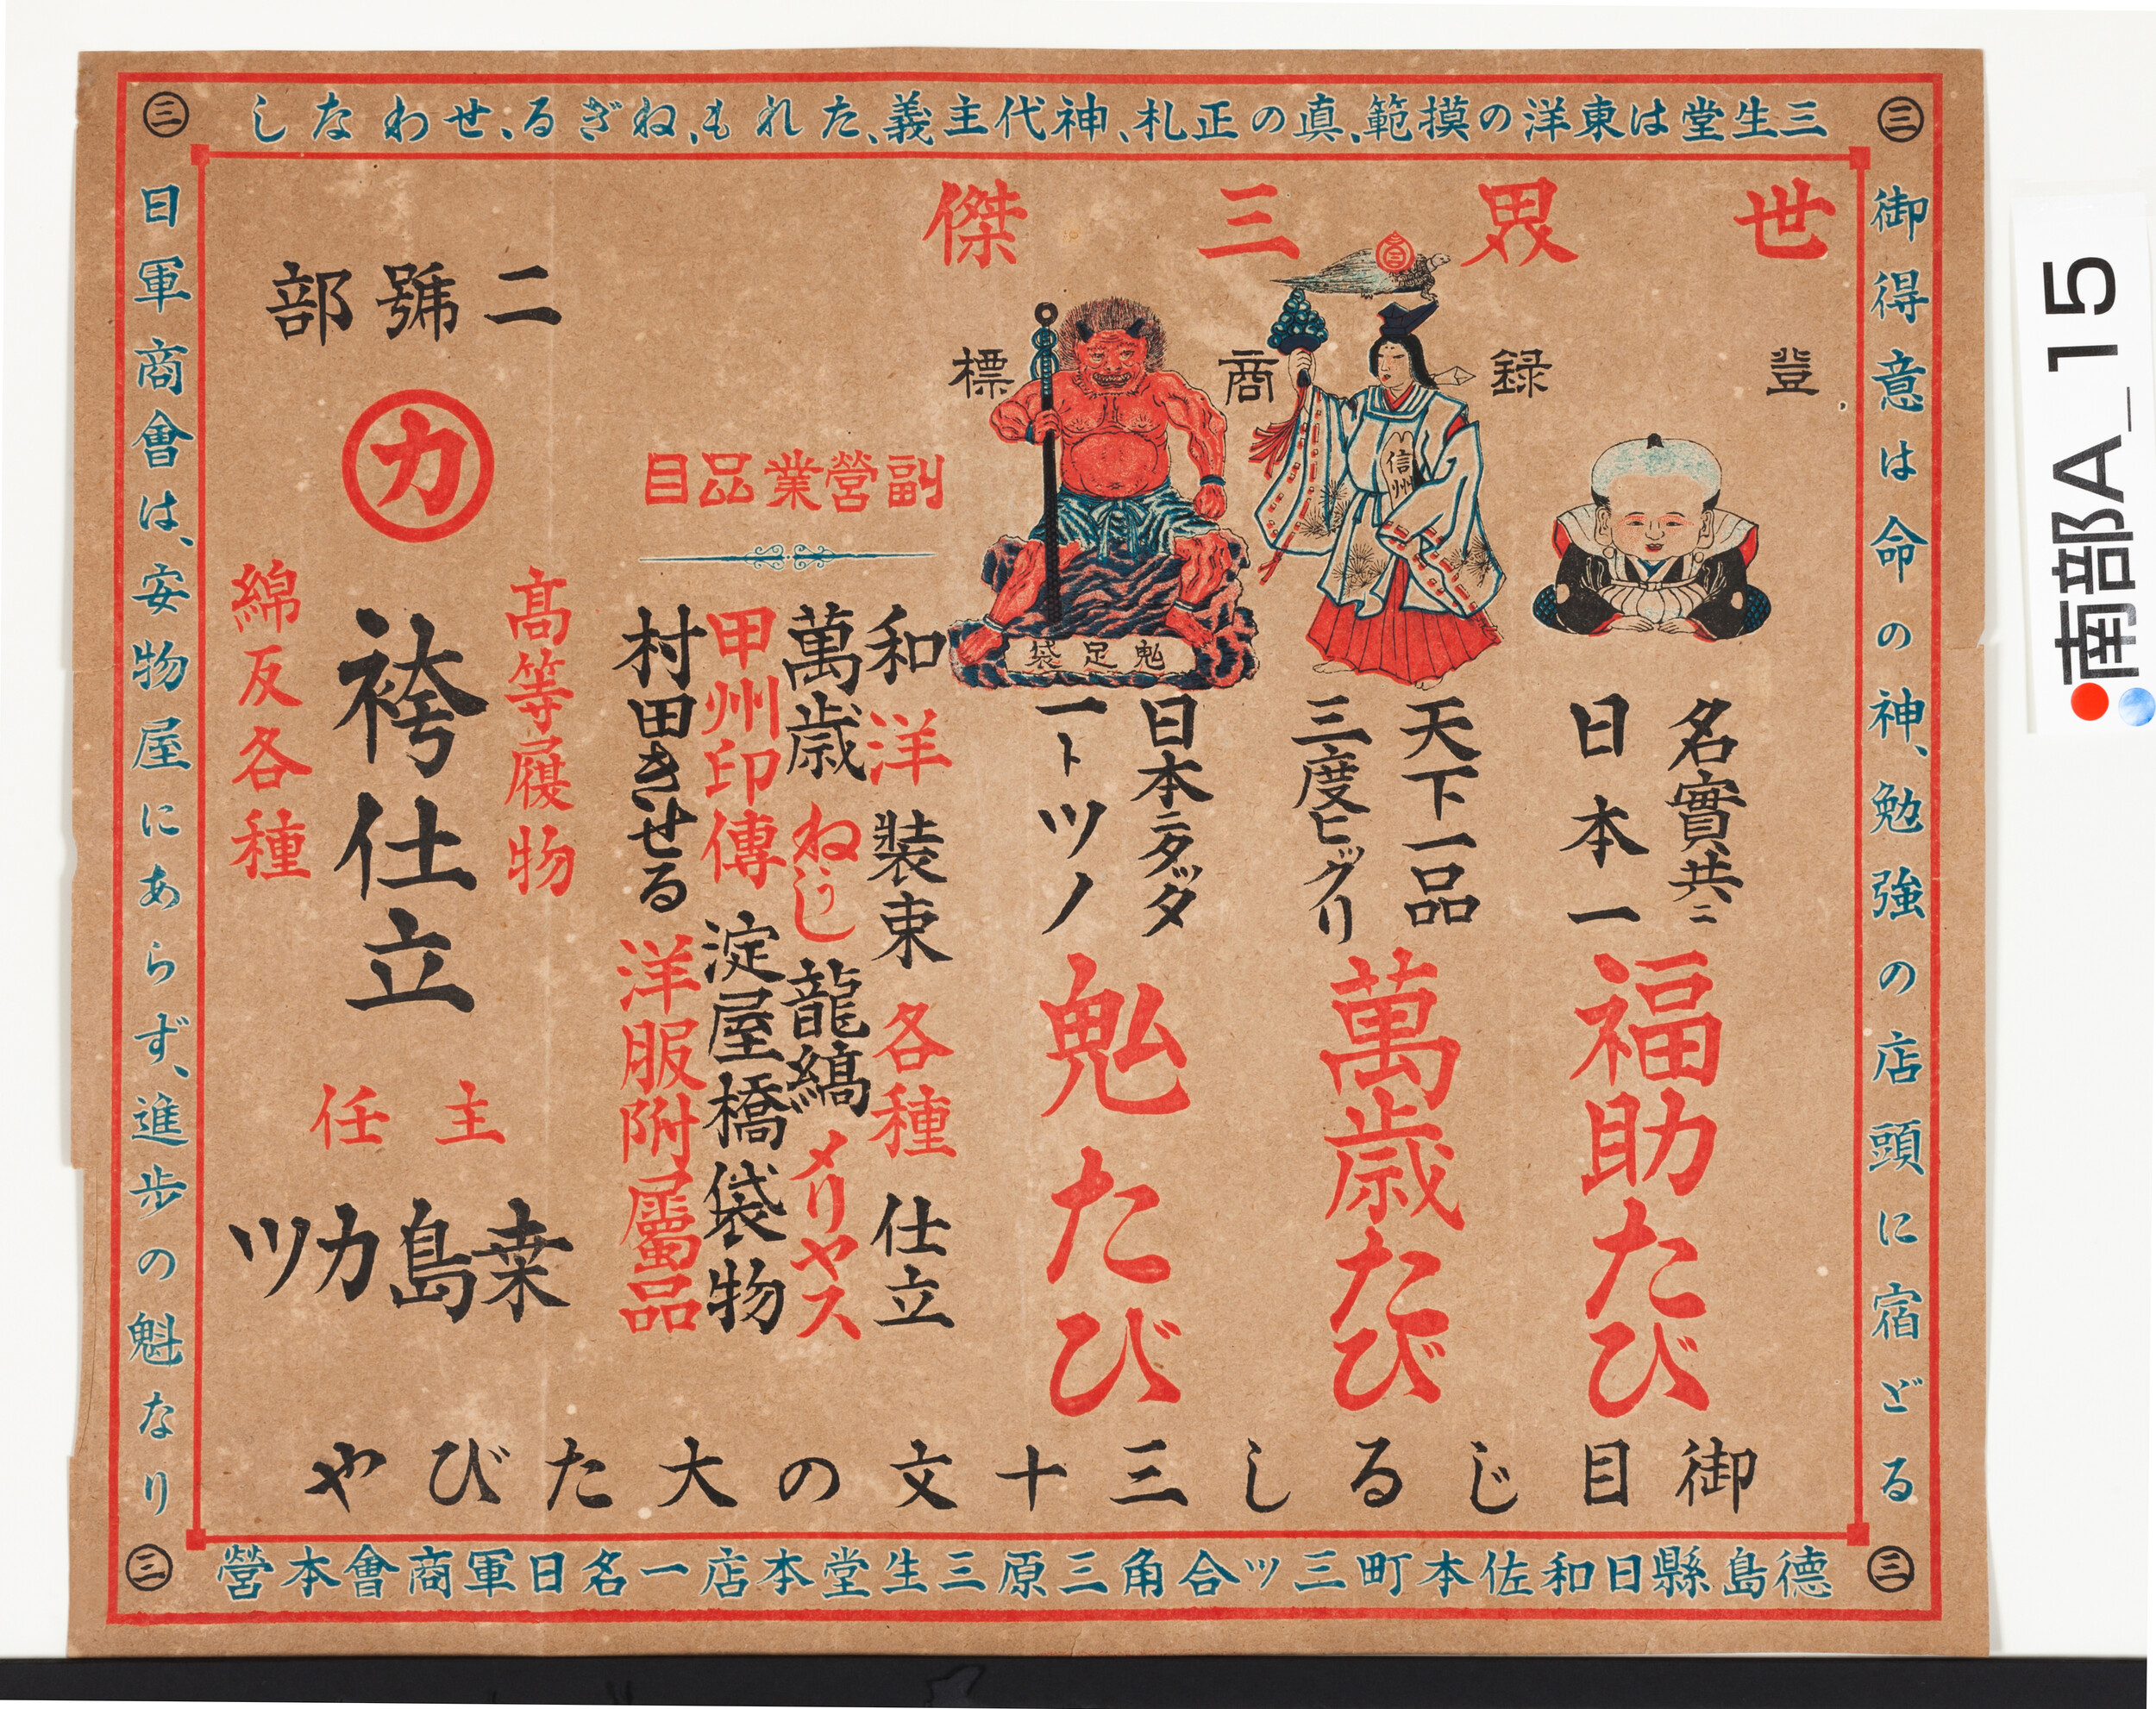 三生堂は東洋の摸範、真の正札、神代主義、たれも、ねぎる、せわなし
御得意は命の神、勉強の店頭に宿どる
世界三傑
登録商標
信州
鬼足袋
名實共ニ
日本一
福助たび
天下一品
三度ビックリ
萬歳たび
日本ニタッタ
一トツノ
鬼たび
副營業品目
和洋装束各種仕立
萬歳ねぢし龍縞メリヤス
甲州印傳淀屋橋袋物
村田きせる洋服附屬品
二號部
カ
高等履物
袴仕立
綿反各種
主任
桒島カツ
御目じるし三十文の大たびや
日軍商會は、安物屋にあらず、進歩の魁なり
德島縣日和佐本町三ッ合角三原三生堂本店一名日軍商會本營
三
三
三
三
南部A_15